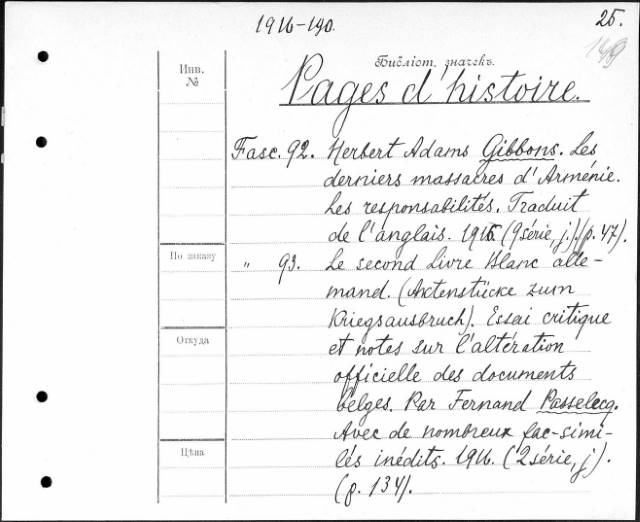 1916-190.
25.
149
Инв.
№
Библіот. значекъ.
Pages d'histoire.
Fasc. 92. Herbert Adams Gibbons. Les
derniers massacres d'Arménie.
Les responsabilités. Traduit
de l'anglais. 1916 (9série, j.). (p. 47).
По заказу
" 93. Le second Livre Blanc alle-
mand. (Aktenstücke zum
Kriegsausbruch). Essai critique
Откуда
et notes sur l'altération
officielle des documents
belges. Par Fernand Passelecq.
Avec de nombreux fac-simi-
Цѣна
lés inédits. 1916. (2série, j).
(p. 134).